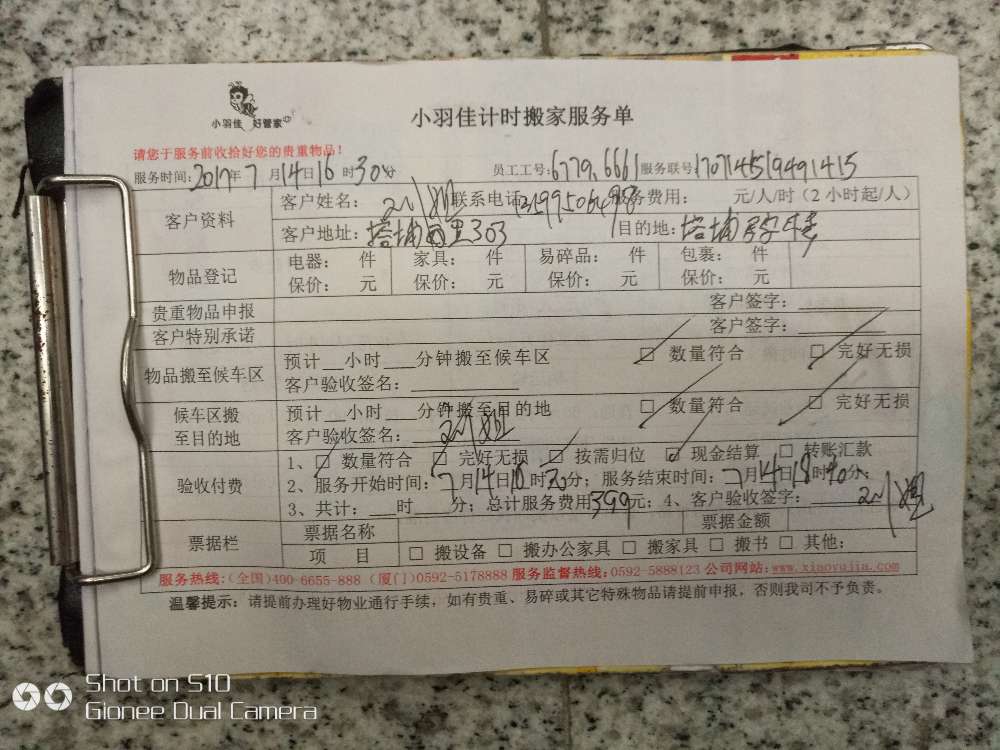 小羽佳 好管家
小羽佳计时搬家服务单
请您于服务前收拾好您的贵重物品！
服务时间：2017年7月14日16时30分 员工工号：6779,6661 服务联号
客户资料 客户姓名： 联系电话 服务费用： 元/人/时（2小时起/人）
客户地址：塔埔西里303 目的地：塔埔
物品登记 电器： 件 家具： 件 易碎品： 件 包裹： 件
保价： 元 保价： 元 保价： 元 保价： 元
贵重物品申报 客户签字：
客户特别承诺 客户签字：
物品搬至候车区 预计__小时___分钟搬至候车区 □ 数量符合 □ 完好无损
客户验收签名：
候车区搬至目的地 预计__小时___分钟搬至目的地 □ 数量符合 □ 完好无损
客户验收签名：
验收付费 1、□ 数量符合 □ 完好无损 □ 按需归位 ☑ 现金结算 □ 转账汇款
2、服务开始时间：7月14日16时30分；服务结束时间：7月14日18时40分；
3、共计：___时____分；总计服务费用399元；4、客户验收签字：
票据栏 票据名称 票据金额
项 目 □ 搬设备 □ 搬办公家具 □ 搬家具 □ 搬书 □ 其他：
服务热线：（全国）400-6655-888（厦门）0592-5178888 服务监督热线：0592-5889123 公司网站：www.xiaoyujia.com
温馨提示：请提前办理好物业通行手续，如有贵重、易碎或其它特殊物品请提前申报，否则我司不予负责。
Shot on S10
Gionee Dual Camera